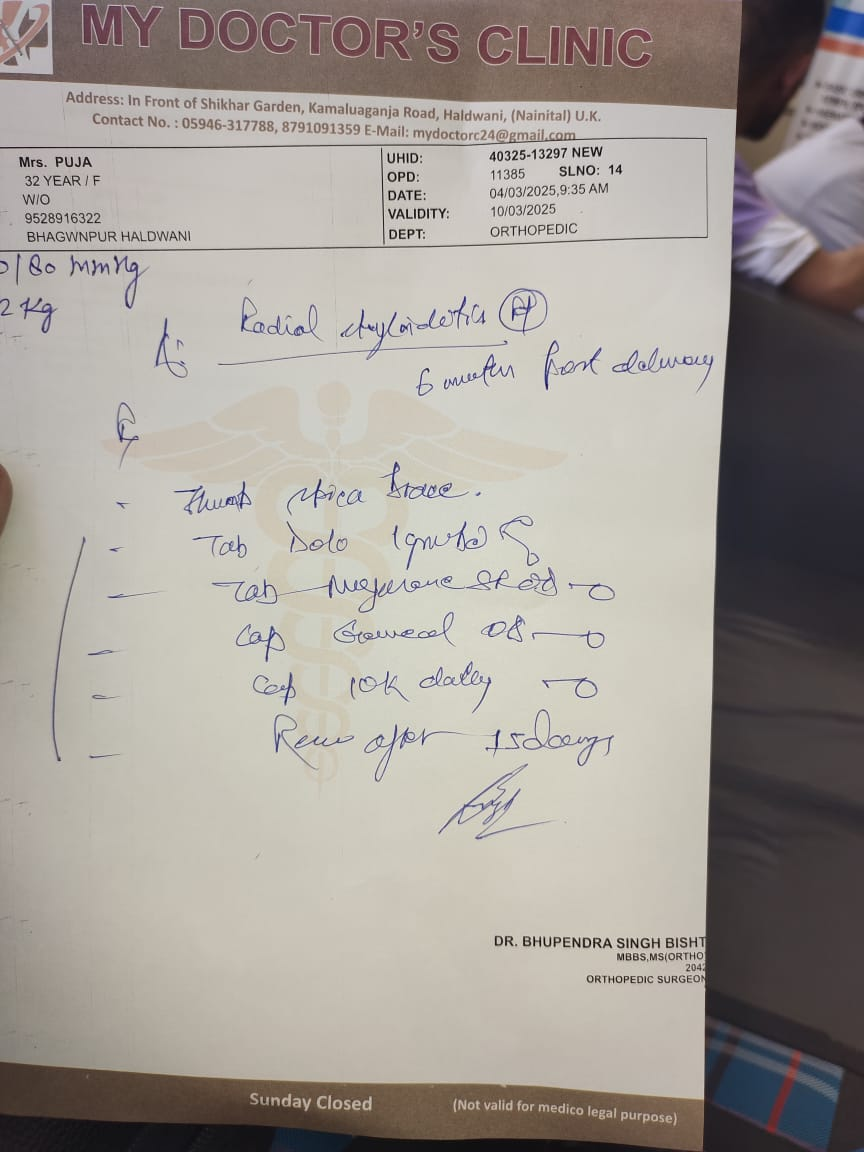 MY DOCTOR'S CLINIC
Address: In Front of Shikhar Garden, Kamaluaganja Road, Haldwani, (Nainital) U.K.
Contact No. : 05946-317788, 8791091359 E-Mail: mydoctorc24@gmail.com
Mrs. PUJA
32 YEAR / F
W/O
9528916322
BHAGWNPUR HALDWANI
UHID: 40325-13297 NEW
OPD: 11385 SLNO: 14
DATE: 04/03/2025,9:35 AM
VALIDITY: 10/03/2025
DEPT: ORTHOPEDIC
/80 mmHg
2 Kg
Radial
6 post delivery
Thumb spica brace.
Tab Dolo
Tab
Cap
Cap 10K daily
after 15 days
DR. BHUPENDRA SINGH BISHT
MBBS,MS(ORTHO
204
ORTHOPEDIC SURGEON
Sunday Closed (Not valid for medico legal purpose)